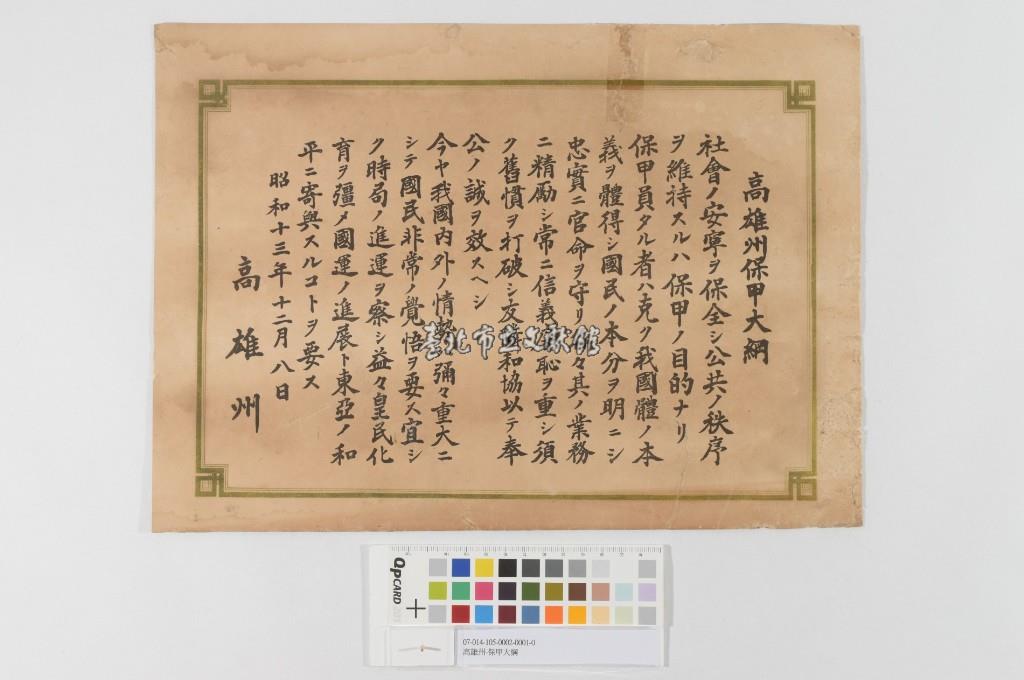 高雄州保甲大綱
社會ノ安寧ヲ保全シ公共ノ秩序
ヲ維持スルハ保甲ノ目的ナリ
保甲員タル者ハ克ク我國體ノ本
義ヲ體得シ國民ノ本分ヲ明ニシ
忠實ニ官命ヲ守リ々其ノ業務
ニ精勵シ常ニ信義恥ヲ重シ須
ク舊慣ヲ打破シ友和協以テ奉
公ノ誠ヲ效スヘシ
今ヤ我國內外ノ情勢彌々重大ニ
シテ國民非常ノ覺悟ヲ要ス宜シ
ク時局ノ進運ヲ察シ益々皇民化
育ヲ彊メ國運ノ進展ト東亞ノ和
平ニ寄與スルコトヲ要ス
昭和十三年十二月八日
高雄州
臺北市立文獻館
QPCARD
07-014-105-0002-0001-0
高雄州-保甲大綱